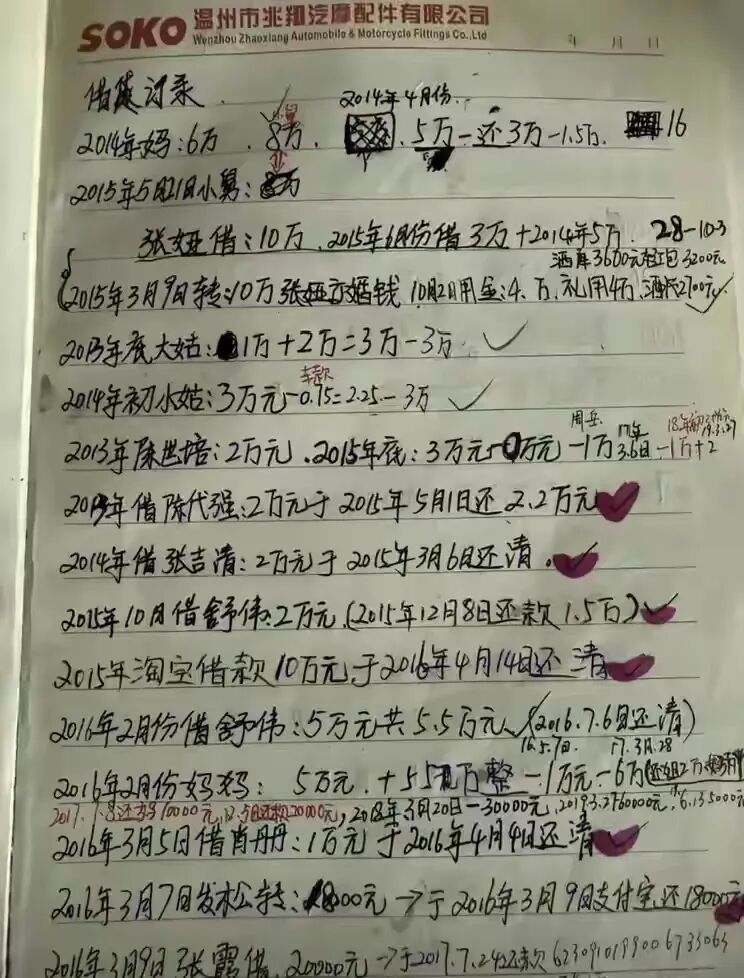 SOKO 温州市兆翔汽摩配件有限公司
Wenzhou Zhaoxiang Automobile & Motorcycle Fittings Co.,Ltd.
年 月 日
借 记录
2014年4月份
小舅
2014年妈：6万 . 8万 . 5万-还3万-1.5万. 16
2015年5月21日小舅：
张娅借：10万 . 2015年6月份借3万+2014年5万. 28-10-3
酒席3600元红包3200元
2015年3月9日转:10万张娅 婚钱 10月2日用金:4.万、礼用4万、酒 2700元
2013年底大姑： 1万+2万=3万-3万
车款
2014年初小姑：3万元-0.75=2.25-3万
周岳 17年
2013年陈世培：2万元 . 2015年底：3万元- 万元 -1万 3.6日 -1万+2
借陈代强：2万元于 2015年5月1日还 2.2万元
2014年借张吉清：2万元于 2015年3月6日还清.
2015年10月借舒伟：2万元.(2015年12月8日还款1.5万)
2015年淘宝借款10万元.于2016年4月14日还清
2016年2月份借舒伟：5万元共5.5万元、(2016.7.6日还清)
16.5.7日. 17.3月.28
2016年2月份妈妈： 5万元.+5 万整-1万元-6万
2017.1.8还妈10000元 20000元, 2018年3月20日-30000元
2016年3月5日借肖丹丹：1万元于2016年4月4日还清
2016年3月7日发松转： 8000元→于2016年3月9日支付宝还18000元
2016年3月9日张霞借.20000元→于2017.7.24还款 6230910199006733063